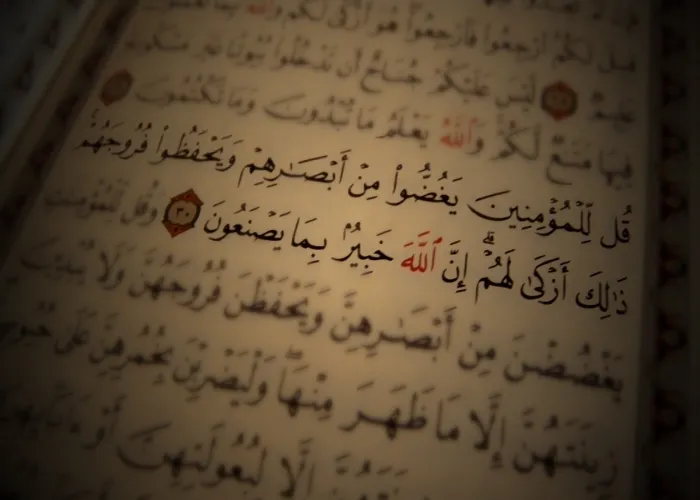 قيل لكم ارجعوا فارجعوا هو أزكى لكم والله بما تعملون
عليم ليس عليكم جناح أن تدخلوا بيوتا غير مسكونة
فِيهَا مَتَٰعٌ لَّكُمْ وَٱللَّهُ يَعْلَمُ مَا تُبْدُونَ وَمَا تَكْتُمُونَ
قُل لِّلْمُؤْمِنِينَ يَغُضُّوا۟ مِنْ أَبْصَٰرِهِمْ وَيَحْفَظُوا۟ فُرُوجَهُمْ
ذَٰلِكَ أَزْكَىٰ لَهُمْ ۗ إِنَّ ٱللَّهَ خَبِيرٌۢ بِمَا يَصْنَعُونَ ٣٠ وَقُل لِّلْمُؤْمِنَٰتِ
يَغْضُضْنَ مِنْ أَبْصَٰرِهِنَّ وَيَحْفَظْنَ فُرُوجَهُنَّ وَلَا يُبْدِينَ
زِينَتَهُنَّ إِلَّا مَا ظَهَرَ مِنْهَا ۖ وَلْيَضْرِبْنَ بِخُمُرِهِنَّ عَلَىٰ
إِلَّا لِبُعُولَتِهِنَّ أَوْ